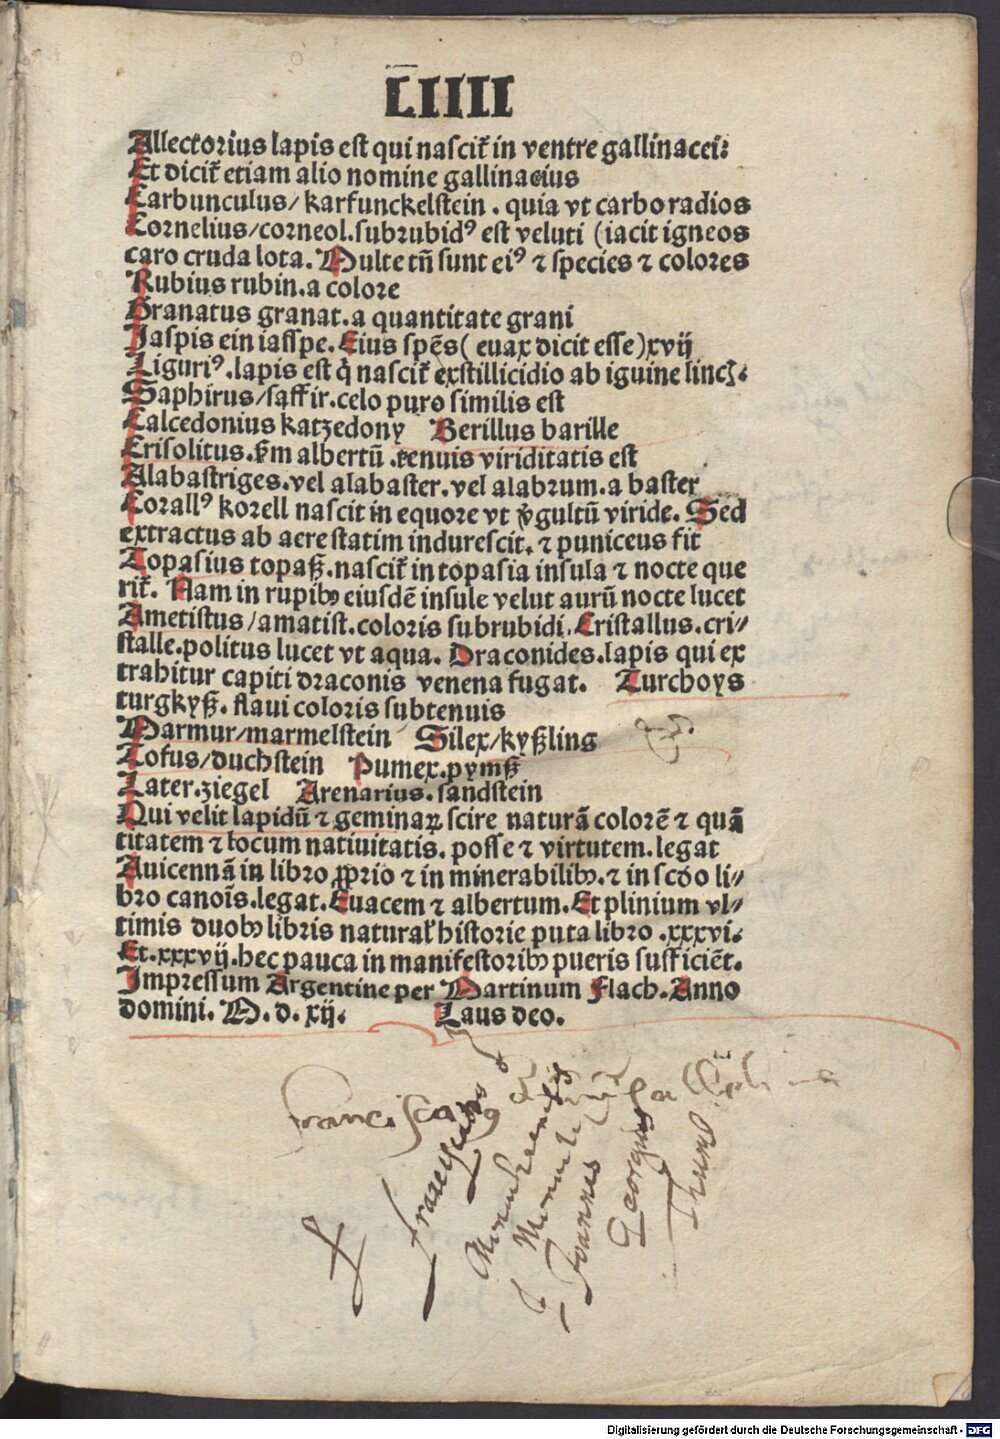 LIIII
Allectorius lapis est qui nascit̃ in ventre gallinacei:
Et dicit̃ etiam alio nomine gallinacius
Carbunculus/ karfunckelstein . quia vt carbo radios
Cornelius/corneol.subrubidꝰ est veluti (iacit igneos
caro cruda lota. Multe tñ sunt eiꝰ ⁊ species ⁊ colores
Rubius rubin.a colore
Granatus granat.a quantitate grani
Jaspis ein iasspe. Eius spẽs ( euax dicit esse)xvij
Liguriꝰ.lapis est q̇ nascit̃ exstillicidio ab iguine lincꝭ.
Saphirus/saffir.celo puro similis est
Calcedonius katzedony Berillus barille
Crisolitus.ẜm albertũ .tenuis viriditatis est
Alabastriges.vel alabaster.vel alabrum.a baster
Corallꝰ korell nascit in equore vt v̾gultũ viride. Sed
extractus ab aere statim indurescit. ⁊ puniceus fit
Topasius topaß.nascit̃ in topasia insula ⁊ nocte que
rit̃. Nam in rupibꝫ eiusdẽ insule velut aurũ nocte lucet
Ametistus/amatist.coloris subrubidi.Cristallus.cri/
stalle.politus lucet vt aqua. Draconides.lapis qui ex
trahitur capiti draconis venena fugat. Turchoys
turgkyß. flaui coloris subtenuis
Marmur/marmelstein Silex/kyßling
Tofus/duchstein Pumex.pymß
Later.ziegel Arenarius.sandstein
Qui velit lapidũ ⁊ geminaꝝ scire naturã colorẽ ⁊ quã
titatem ⁊ locum natiuitatis. posse ⁊ virtutem.legat
Auicennã in libro ꝓprio ⁊ in minerabilibꝫ.⁊ in scd̃o li/
bro canoĩs.legat.Euacem ⁊ albertum.Et plinium vl/
timis duobꝫ libris natural̾ historie puta libro .xxxvi.
Et.xxxvij.hec pauca in manifestoribꝫ pueris sufficiẽt.
Impressum Argentine per Martinum Flach.Anno
domini. M.d.xij. Laus deo.
Franciscanꝰ
Joannes
Georgius
Digitalisierung gefördert durch die Deutsche Forschungsgemeinschaft - DFG